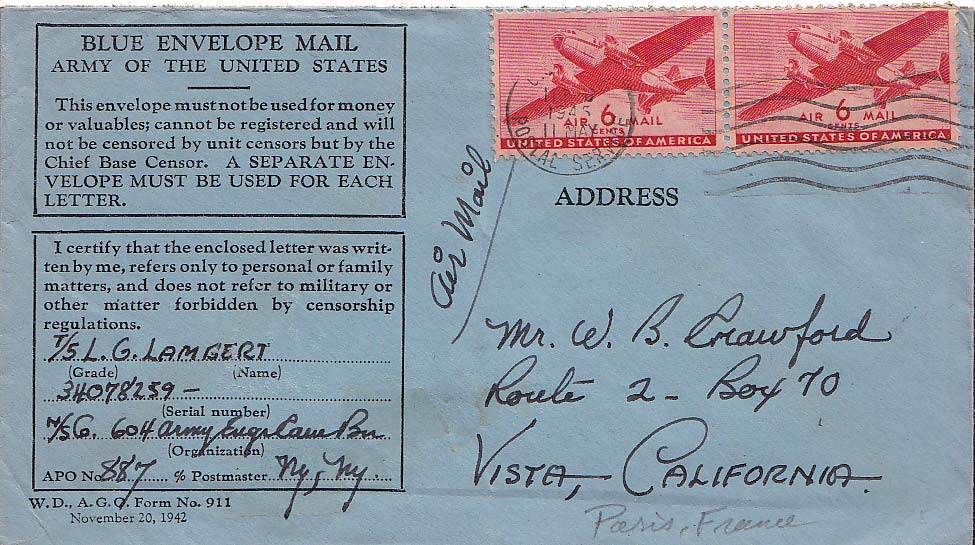 BLUE ENVELOPE MAIL
ARMY OF THE UNITED STATES
This envelope must not be used for money
or valuables; cannot be registered and will
not be censored by unit censors but by the
Chief Base Censor. A SEPARATE EN-
VELOPE MUST BE USED FOR EACH
LETTER.
I certify that the enclosed letter was writ-
ten by me, refers only to personal or family
matters, and does not refer to military or
other matter forbidden by censorship
regulations.
T/5 L. G. LAMBERT
(Grade) (Name)
34078259 -
(Serial number)
604 Army Engr Cam Bn
(Organization)
APO No 887 % Postmaster Ny, Ny
W. D., A. G. O. Form No. 911
November 20, 1942
AIR 6 MAIL
CENTS
UNITED STATES OF AMERICA
AIR 6 MAIL
CENTS
UNITED STATES OF AMERICA
1945
11 MAY
POSTAL SERVICE
ADDRESS
Air Mail
Mr. W. B. Crawford
Route 2 - Box 70
VISTA, CALIFORNIA.
Paris, France